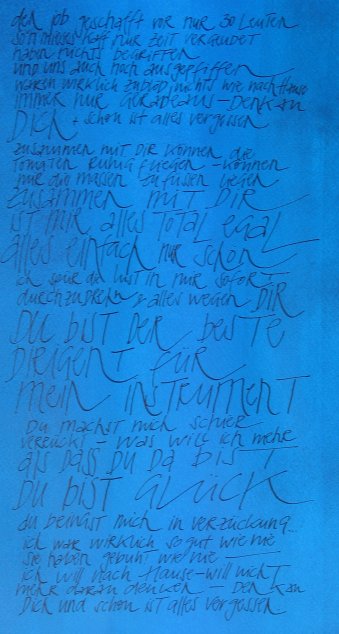 den job geschafft vor nur 30 Leuten
so'n mieses Kaff nur Zeit vergeudet
haben nichts begriffen
und uns auch noch ausgepfiffen
waren wirklich zu blöd, nichts wie nach Hause
immer nur Geradeaus – Denk an
DICH + schon ist alles vergessen
zusammen mit DIR können die
Tomaten ruhig fliegen – können
mir die massen zu füssen liegen
zusammen mit DIR
ist mir alles total egal
alles einfach nur schön
ich spür die lust in mir sofort
durchzudrehn + alles wegen DIR
DU bist DER beste
DIRIGENT FÜR
mein INSTRUMENT
Du machst mich schier
verrückt – was will ich mehr
als dass DU DA bist
DU bist GLÜCK
du bringst mich in verzückung...
ich war wirklich so gut wie nie
sie haben gebuht wie nie
ich will nach Hause – will nicht
mehr daran denken – Denk an
Dich und schon ist alles vergessen